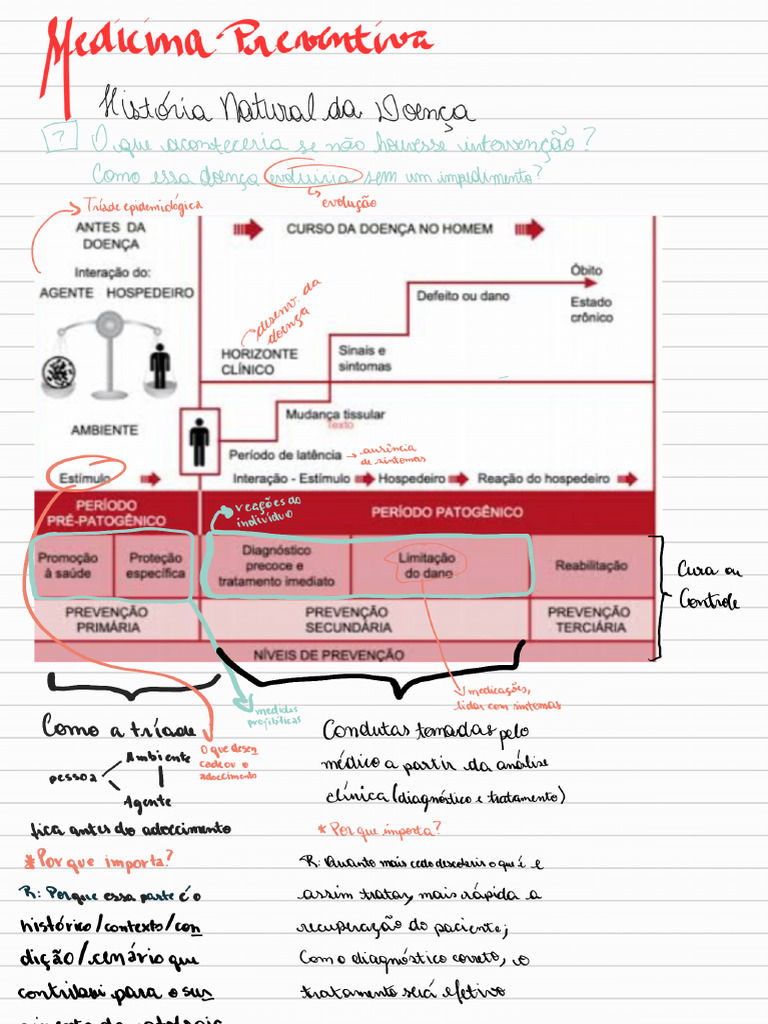 Medicina Preventiva
História Natural da Doença
? O que aconteceria se não houvesse intervenção?
Como essa doença evoluiria sem um impedimento?
evolução
Tríade epidemiológica
ANTES DA
DOENÇA
CURSO DA DOENÇA NO HOMEM
Interação do:
AGENTE HOSPEDEIRO
Óbito
Defeito ou dano
Estado
crônico
desenv. da
doença
HORIZONTE
CLÍNICO
Sinais e
sintomas
Mudança tissular
Texto
AMBIENTE
Período de latência
ausência
de sintomas
Estímulo
Interação - Estímulo
Hospedeiro
Reação do hospedeiro
PERÍODO
PRÉ-PATOGÊNICO
reações do
indivíduo
PERÍODO PATOGÊNICO
Promoção
à saúde
Proteção
específica
Diagnóstico
precoce e
tratamento imediato
Limitação
do dano
Reabilitação
Cura ou
Controle
PREVENÇÃO
PRIMÁRIA
PREVENÇÃO
SECUNDÁRIA
PREVENÇÃO
TERCIÁRIA
NÍVEIS DE PREVENÇÃO
medicações,
lidar com sintomas
medidas
profiláticas
Como a tríade
Ambiente
pessoa
Agente
O que desen
cadeou o
adoecimento
fica antes do adoecimento
*Por que importa?
R: Porque essa parte é o
histórico/contexto/con
dição/cenário que
contribui para o sur
gimento da patologia
Condutas tomadas pelo
médico a partir da análise
clínica (diagnóstico e tratamento)
*Por que importa?
R: Quanto mais cedo descobrir o que é e
assim tratar, mais rápida a
recuperação do paciente;
Com o diagnóstico correto, o
tratamento será efetivo